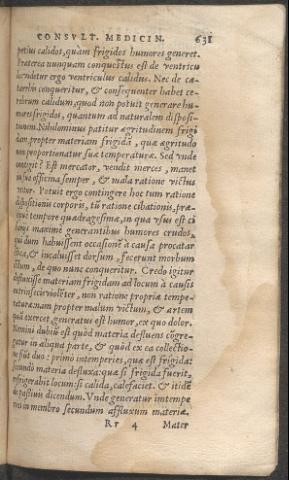 CONSVLT. MEDICIN. 631
potius calidos, quàm frigidos humores generet.
Præterea nunquam conquestus est de ventriculo
ergo ventriculus calidus. Nec de ca-
tarrho conqueritur, & consequenter habet ce-
rebrum calidum, quod non potuit generare hu-
mores frigidos, quantum ad naturalem disposi-
tionem. Nihilominus patitur ægritudinem frigi
dam propter materiam frigidã, quæ ægritudo
non proportionatur suæ temperaturæ. Sed vnde
contigit? Est mercator, vendit merces, manet
in officina semper, & mala ratione victus
vtitur. Potuit ergo contingere hoc tum ratione
dispositionis corporis, tũ ratione cibationis, præ-
tempore quadragesimæ, in qua vsus est ci
bis maximè generantibus humores crudos,
qui dum habuissent occasionẽ à causa procatar
ctica, & incaluisset dorsum, fecerunt morbum
illum, de quo nunc conqueritur. Credo igitur
defluxisse materiam frigidam ad locum à causis
non ratione propriæ tempe-
raturæ: nam propter malum victum, & artem
quã exercet, generatus est humor, ex quo dolor.
Nemini dubiũ est quòd materia defluens cõgre-
gatur in aliqua parte, & quòd ex ea collectio-
ne fiũt duo: primò intemperies, quæ est frigida:
secundò materia defluxa: quæ si frigida fuerit,
refrigerabit locum: si calida, calefaciet. & itidẽ
de passiuis dicendum. Vnde generatur intempe
ries in membro secundum affluxum materiæ.
Rr 4 Mater